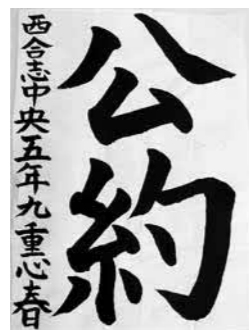 公約
西合志中央五年九重心春